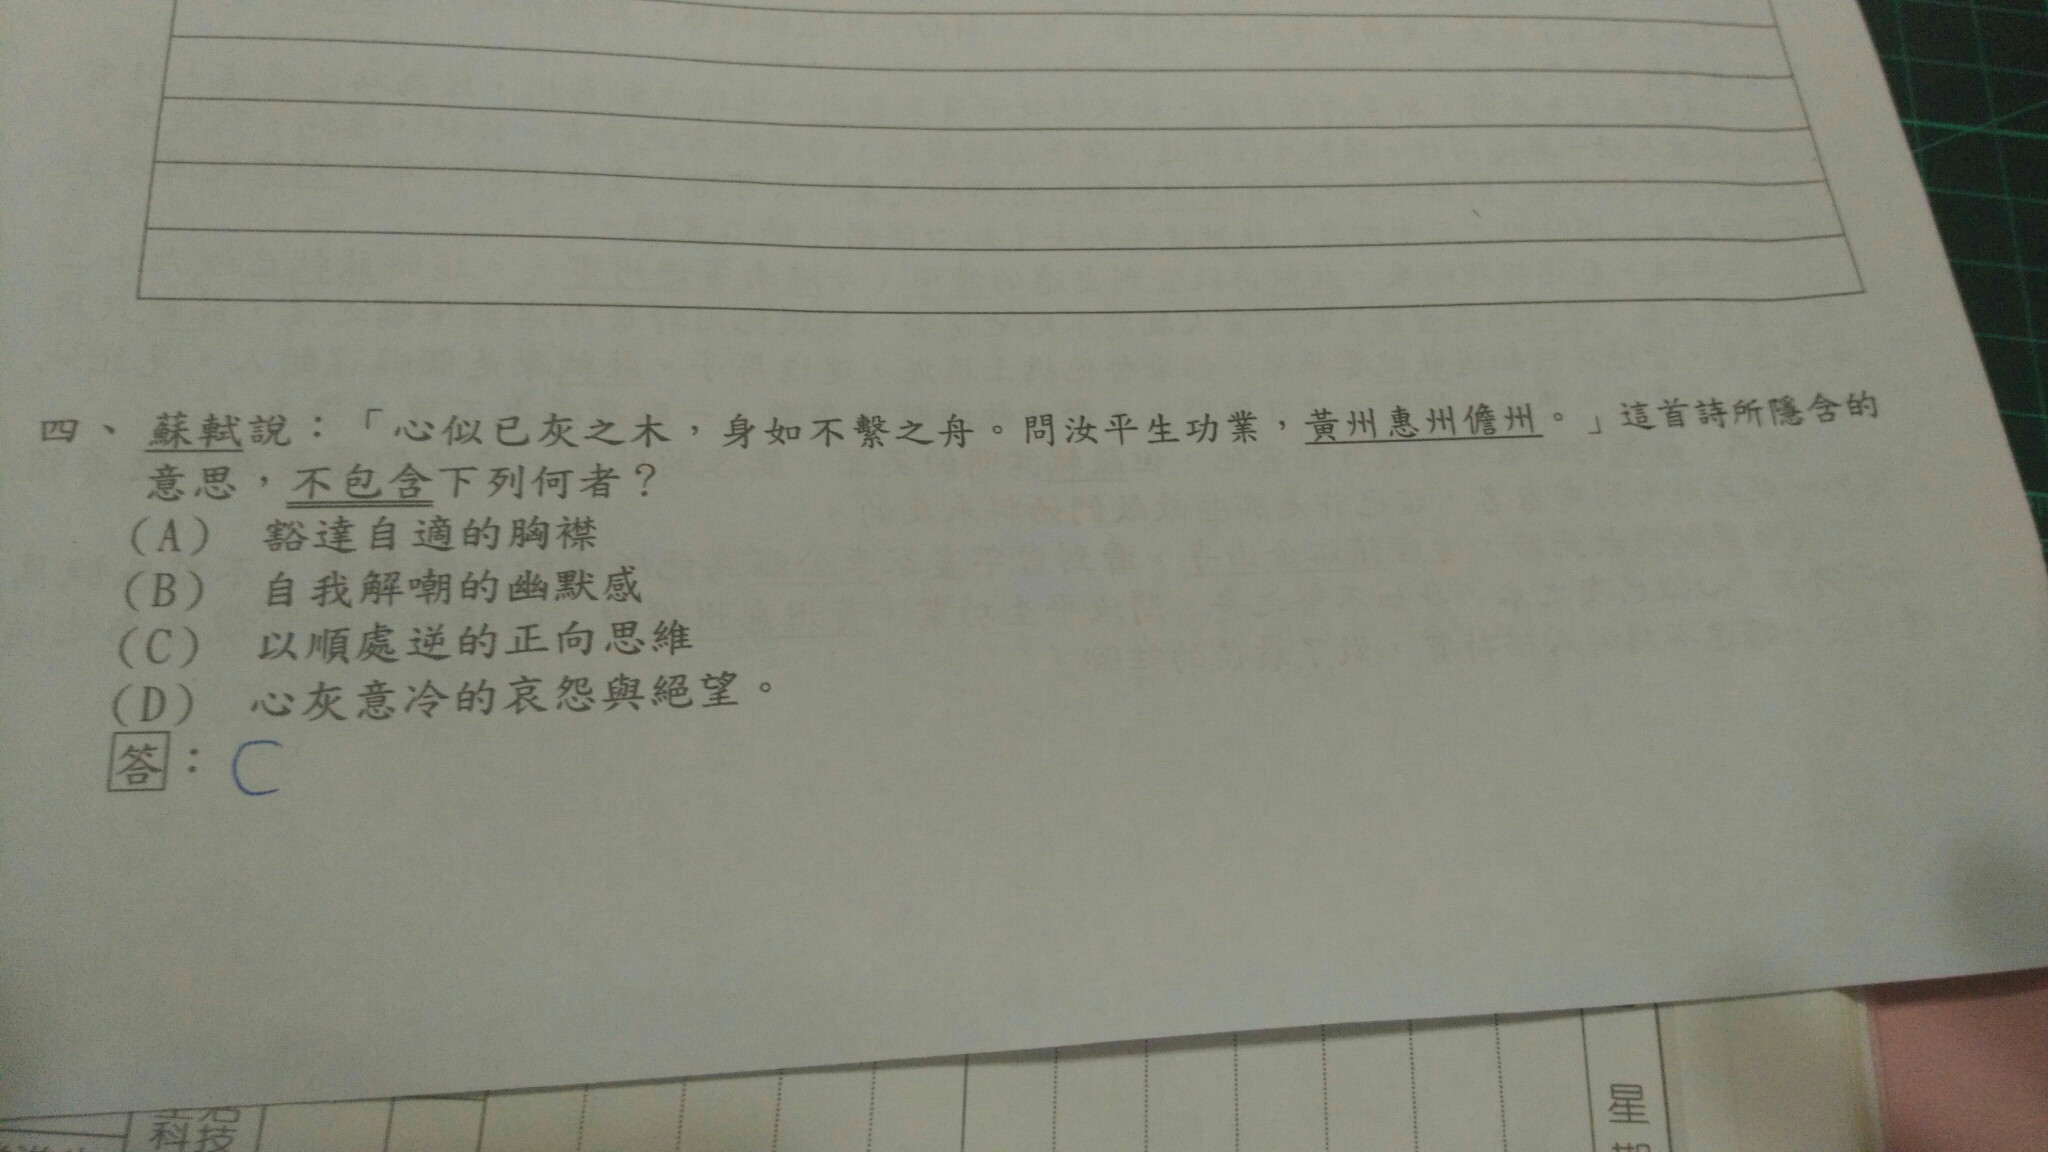 四、蘇軾說：「心似已灰之木，身如不繫之舟。問汝平生功業，黃州惠州儋州。」這首詩所隱含的
意思，不包含下列何者？
(A) 豁達自適的胸襟
(B) 自我解嘲的幽默感
(C) 以順處逆的正向思維
(D) 心灰意冷的哀怨與絕望。
答：C
科技
星